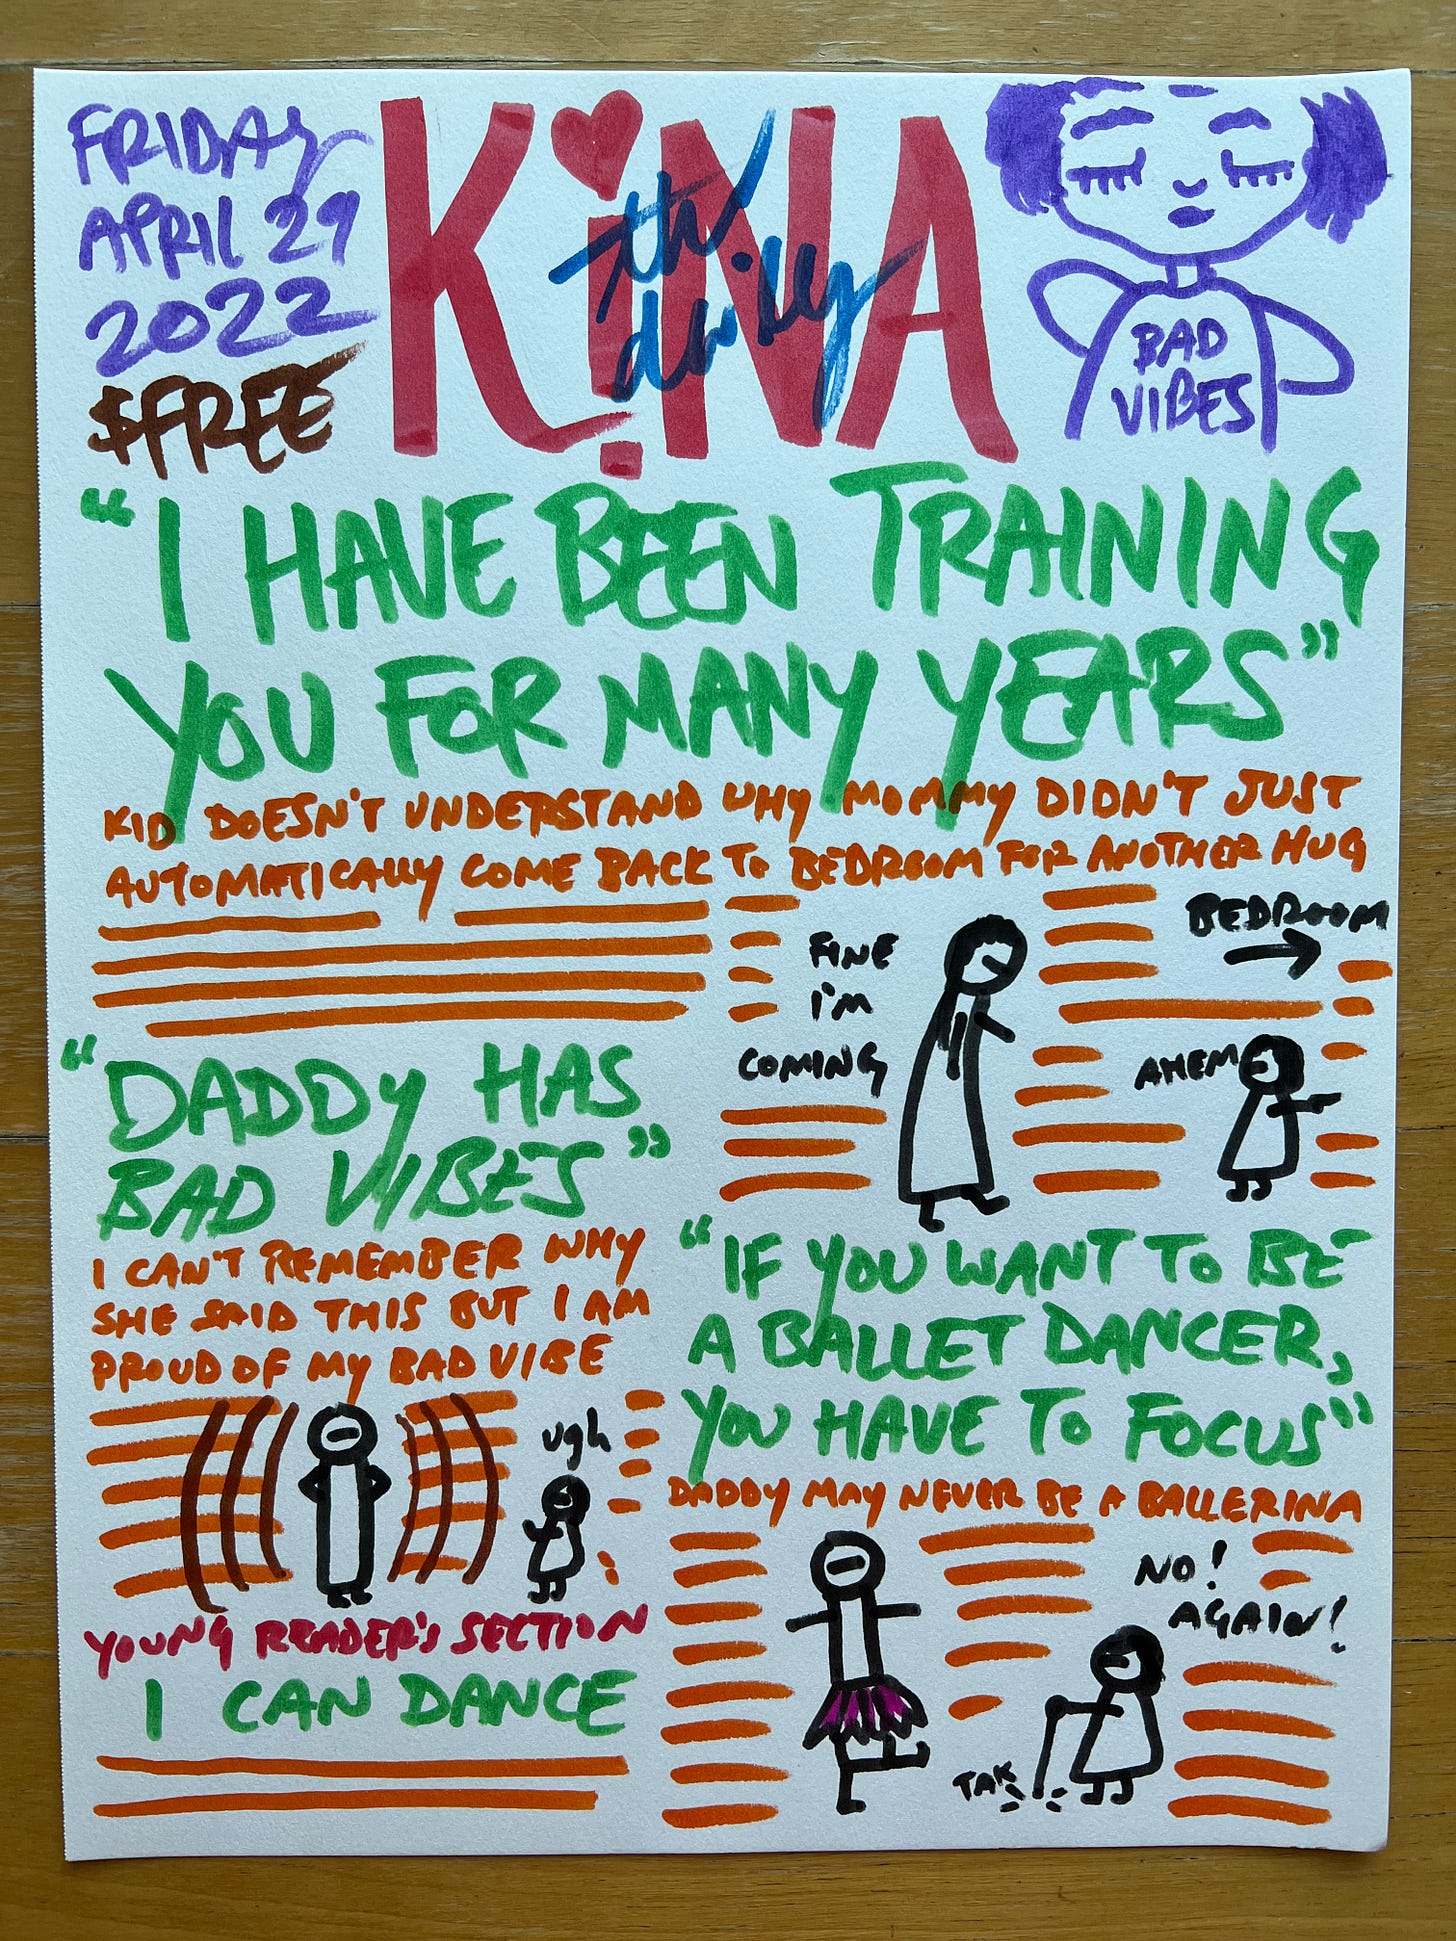 FRIDAY
APRIL 29
2022
$FREE
KiNA
the
daily
BAD
VIBES
"I HAVE BEEN TRAINING
YOU FOR MANY YEARS"
KID DOESN'T UNDERSTAND WHY MOMMY DIDN'T JUST
AUTOMATICALLY COME BACK TO BEDROOM FOR ANOTHER HUG
FINE
I'M
COMING
BEDROOM
AHEM
"DADDY HAS
BAD VIBES"
I CAN'T REMEMBER WHY
SHE SAID THIS BUT I AM
PROUD OF MY BAD VIBE
ugh
YOUNG READER'S SECTION
I CAN DANCE
"IF YOU WANT TO BE
A BALLET DANCER,
YOU HAVE TO FOCUS"
DADDY MAY NEVER BE A BALLERINA
NO!
AGAIN!
TAK